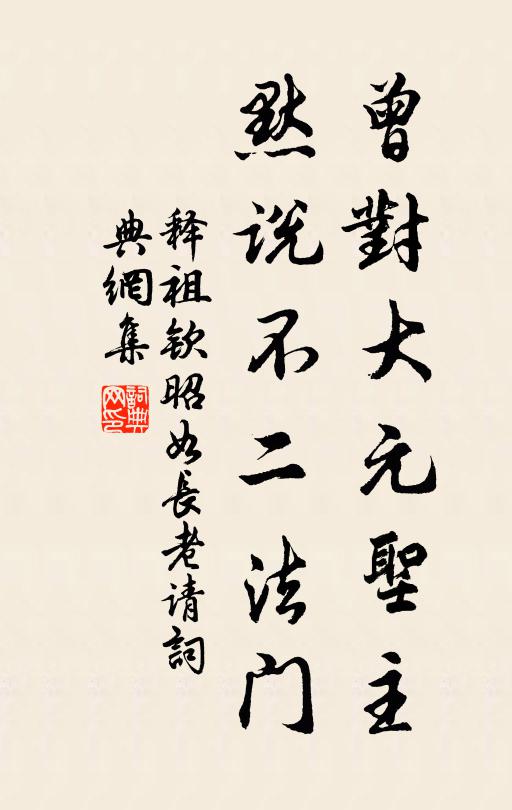 曾對大元聖主
默説不二法门
释祖钦昭如長老请詞
典網集
詞典网印